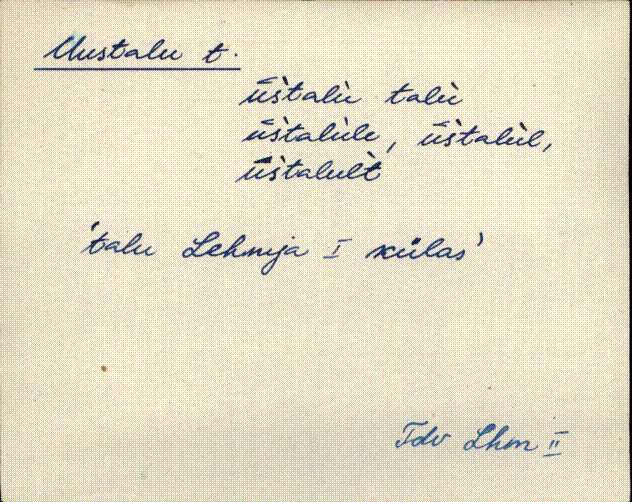 Uustalu t.
ūstalu talu
ūstalule, ūstalul,
ūstalult
'talu Lehmja I külas'
Tdv Lhm II